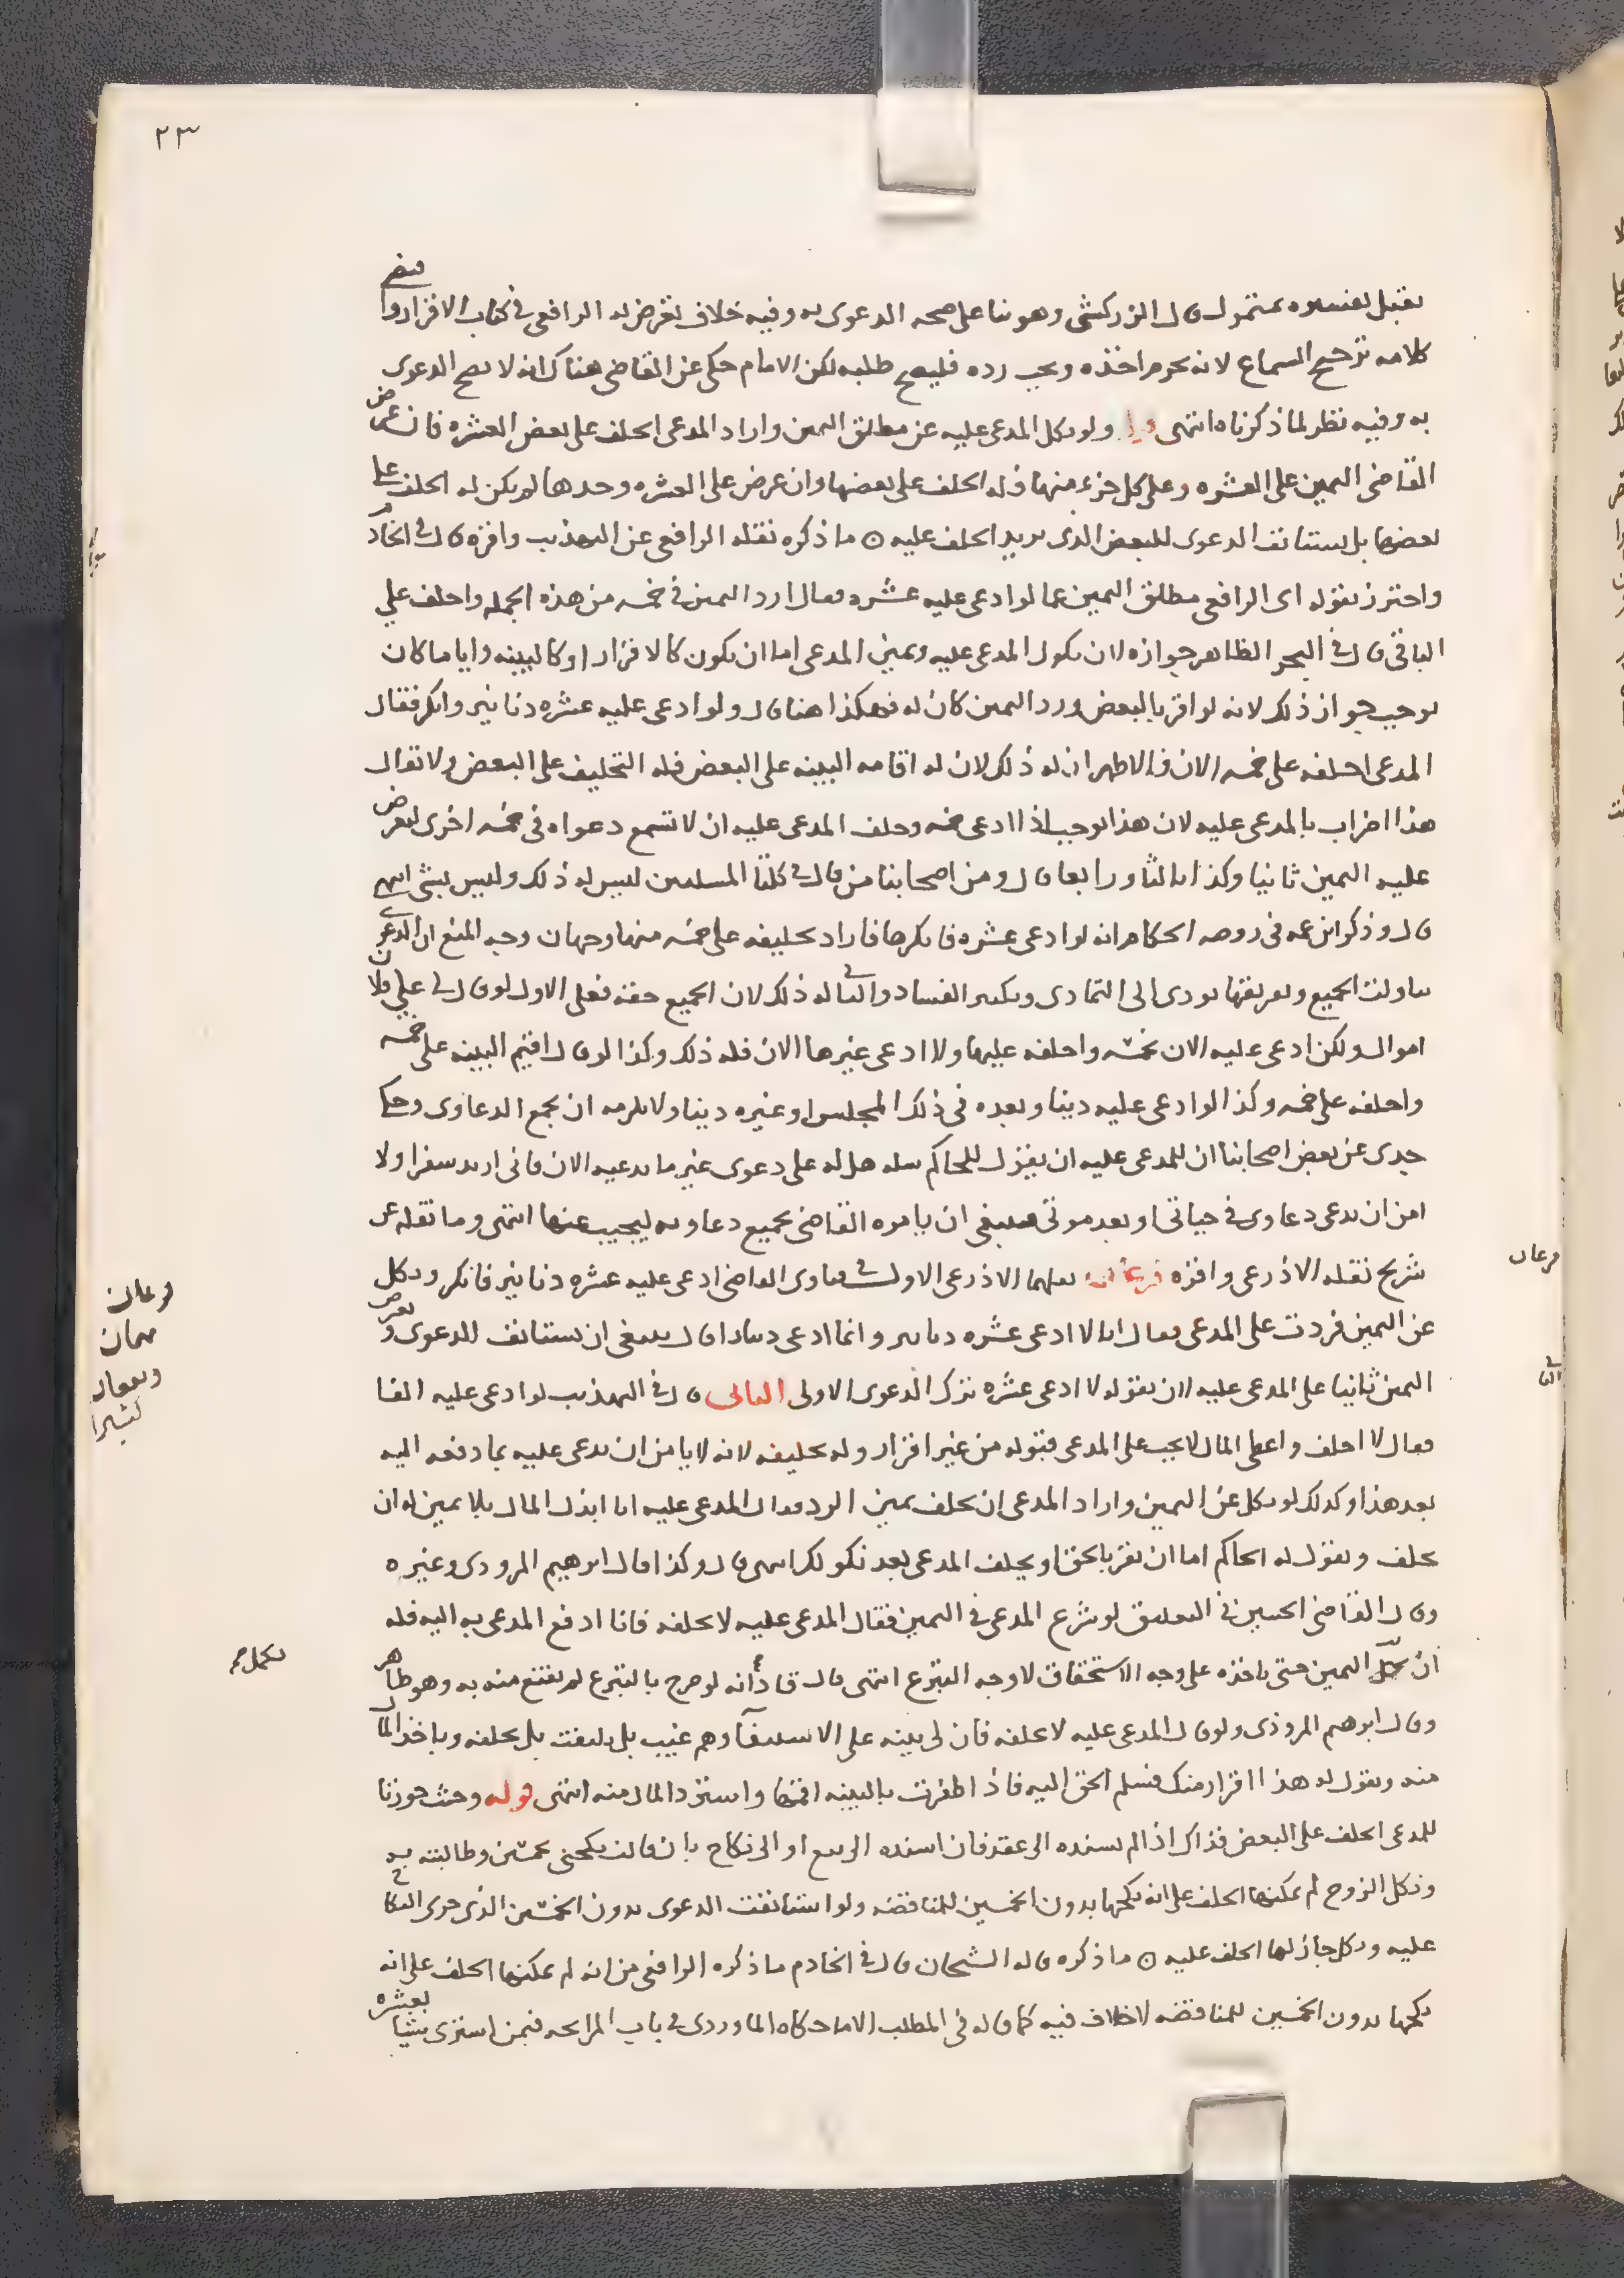 ٢٣
يقبل تفسيره بمتمول قال الزركشي وهو بنا على صحه الدعوى به وفيه خلاف تعرض له الرافعي في كتاب الاقرار و
كلامه ترجيح السماع لانه يحرم اخذه ويجب رده فليصح طلبه لكن الامام حكى عن القاضي هناك انه لا تصح الدعوى
به وفيه نظر لما ذكرناه انتهى ولو نكل المدعى عليه عن مطلق اليمين واراد المدعي الحلف على بعض العشره فان عرض
القاضي اليمين على العشره وعلى كل جزء منها فله الحلف على بعضها وان عرض على العشره وحدها لم يكن له الحلف على
بعضها بل يستانف الدعوى للبعض الذي يريد الحلف عليه ما ذكره نقله الرافعي عن التهذيب واقره قال في الخادم
واحترز بقوله اي الرافعي مطلق اليمين عما لو ادعى عليه عشره فقال ارد اليمين في خمسه من هذه الجمله واحلف علي
الباقي قال في البحر الظاهر جوازه لان نكول المدعى عليه ويمين المدعي اما ان يكون كالاقرار او كالبينه وايا ما كان
يوجب جواز ذلك لانه لو اقر بالبعض ورد اليمين كان له فهكذا هنا قال ولو ادعى عليه عشره دنانير وانكر فقال
المدعي احلفه على خمسه الان فالاظهر ان له ذلك لان له اقامه البينه على البعض فله التحليف على البعض ولا تقال
هذا اضراب بالمدعى عليه لان هذا يوجب اذا ادعى خمسه وحلف المدعى عليه ان لا تسمع دعواه في خمسه اخرى لتعرض
عليه اليمين ثانيا وكذا ثالثا ورابعا قال ومن اصحابنا من قال في كلتا المسلتين ليس له ذلك وليس بشي انتهى
قال وذكر ابن عمه في روضه الحكام انه لو ادعى عشره فانكرها فاراد تحليفه على خمسه منها وجهان وجه المنع ان الدعوى
تناولت الجميع وتفريقها يودي الى التمادي وتكثير الفساد والثاني له ذلك لان الجميع حقه فعلى الاول لو قال لي على فلان
اموال ولكن ادعي عليه الان بخمسه واحلفه عليها ولا ادعي غيرها الان فله ذلك وكذا لو قال اقيم البينه على خمسه
واحلفه على خمسه وكذا لو ادعى عليه دينا وبعده في ذلك المجلس او غيره دينا ولا يلزمه ان يجمع الدعاوى وحكى
جدي عن بعض اصحابنا ان للمدعى عليه ان يقول للحاكم سله هل له على دعوى غير ما يدعيه الان فاني اريد سفرا ولا
امن ان يدعي دعاوى في حياتي او بعد موتي فينبغي ان يامره القاضي بجميع دعاويه ليجيب عنها انتهى وما نقله عن
شريح نقله الاذرعي واقره فرعان نقلهما الاذرعي الاول في فتاوى القاضي ادعى عليه عشره دنانير فانكر ونكل
عن اليمين فردت على المدعي فقال انا لا ادعي عشره دنانير وانما ادعي دينارا قال ينبغي ان يستانف الدعوى وتعرض
اليمين ثانيا على المدعى عليه لان بقوله لا ادعي عشره ترك الدعوى الاولى الثاني قال في التهذيب لو ادعى عليه الفا
فقال لا احلف واعطى المال لا يجب على المدعي قبوله من غير اقرار وله تحليفه لانه لا يامن ان يدعي عليه بما دفعه اليه
بعد هذا وكذلك لو نكل عن اليمين واراد المدعي ان يحلف يمين الرد فقال المدعى عليه انا ابذل المال بلا يمين له ان
يحلف ويقول له الحاكم اما ان تقر بالحق او يحلف المدعي بعد نكولك انتهى قال وكذا قال ابرهيم المرودي وغيره
وقال القاضي الحسين في التعليق لو شرع المدعي في اليمين فقال المدعى عليه لا تحلفه فانا ادفع المدعى به اليه فله
ان يكمل اليمين حتى ياخذه على وجه الاستحقاق لا وجه التبرع انتهى قال فاذا انه لو صرح بالتبرع لم يقنع منه به وهو ظاهر
وقال ابرهيم المروذي ولو قال المدعى عليه لا تحلفه فان لي بينه على الاستيفا وهم غيب بل يحلفه وياخذ المال
منه ويقول له هذا اقرار منك فسلم الحق اليه فاذا ظفرت بالبينه اقمها واسترد المال منه انتهى قوله وحيث جوزنا
للمدعي الحلف على البعض فذاك اذا لم يسنده الى عقد فان اسنده الى بيع او الى نكاح بان قالت نكحني بخمسين وطالبته به
ونكل الزوج لم يمكنها الحلف على انه نكحها بدون الخمسين للمناقضه ولو استانفت الدعوى بدون الخمسين الذي جرى النكاح
عليه ونكل جاز لها الحلف عليه ما ذكره قاله الشيخان قال في الخادم ما ذكره الرافعي من انه لم يمكنها الحلف على انه
نكحها بدون الخمسين للمناقضه لا خلاف فيه كما قاله في المطلب الا ما حكاه الماوردي في باب المرابحه فيمن اشترى شيئا بعشره
فرعان
مهمان
ويقعان
كثيرا
يكمل صح
فرعان
الثاني